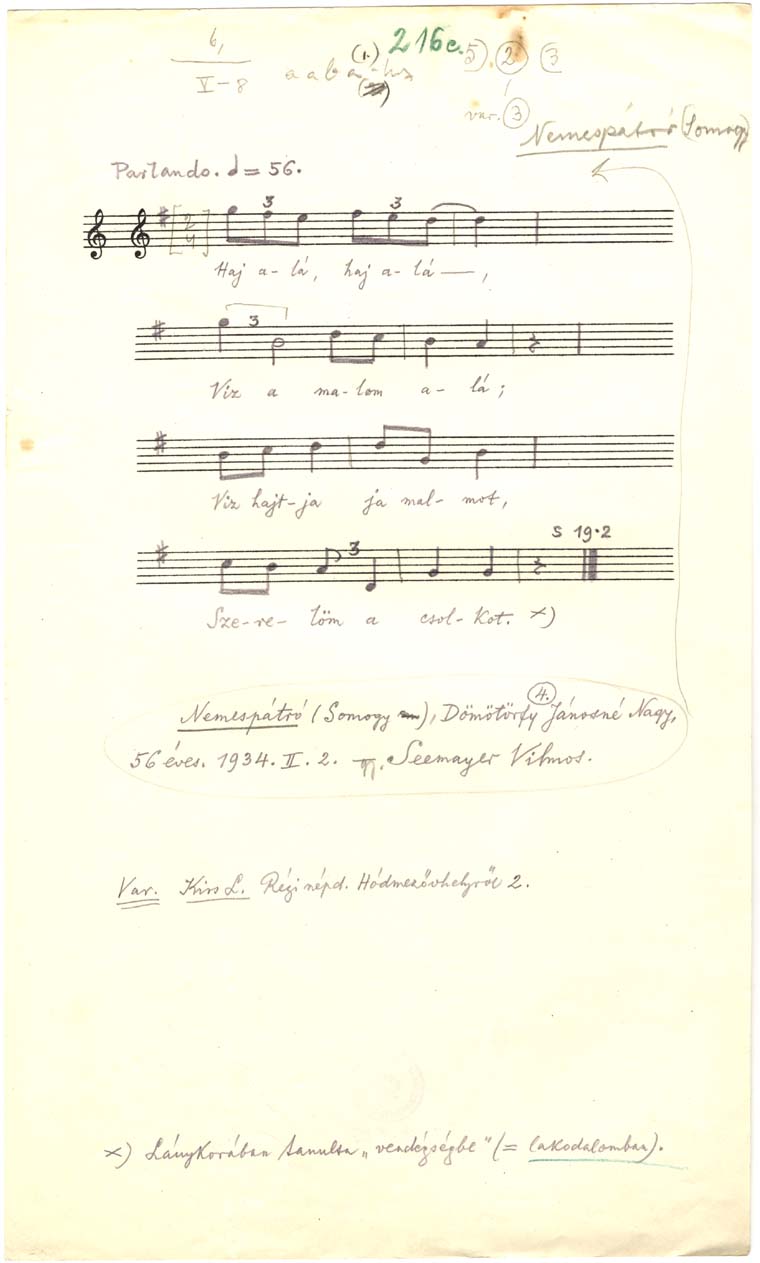 6, (1.) 216c. 5). (2) (3
V–8 a a b a
var. (3)
Nemespátró (Somogy)
Parlando. ♩= 56.
3 3
2
4
Haj a- lá, haj a- lá —,
3
Viz a ma- lom a- lá;
Viz hajt- ja ja mal- mot,
3 S 19·2
Sze- re- löm a csol- kot. x)
4.
Nemespátró (Somogy), Dömötörfy Jánosné Nagy,
56 éves. 1934. II. 2. Seemayer Vilmos.
Var. Kiss L. Régi népd. Hódmezővhelyről 2.
x) Lánykorában tanulta „vendégségbe" (= lakodalomban).